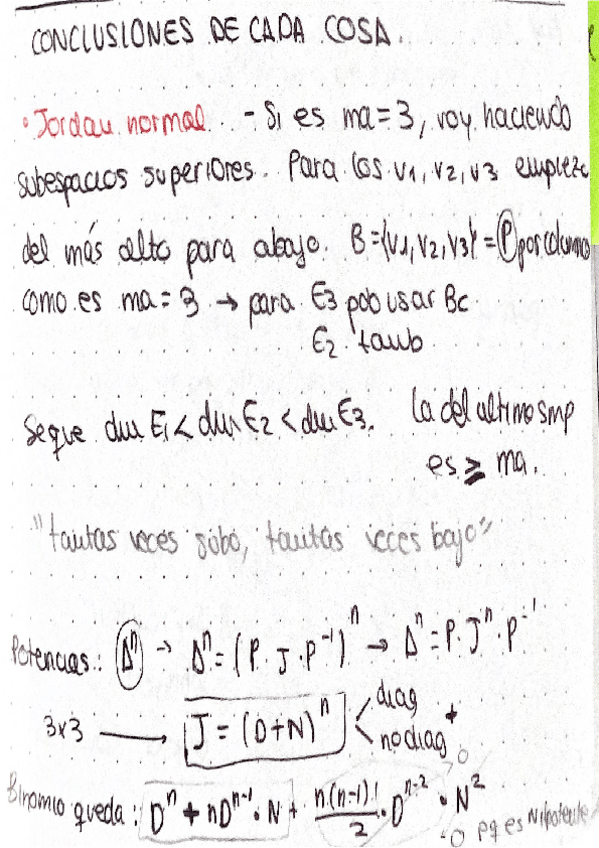 CONCLUSIONES DE CADA COSA.
• Jordan normal - Si es ma=3, voy haciendo
subespacios superiores. Para los v1, v2, v3 empiezo
del más alto para abajo. B={v1,v2,v3} = P por columnas
como es ma=3 → para E3 pob usar Bc
E2 tamb
Se que dim E1 < dim E2 < dim E3. La del ultimo smp
es ≥ ma.
"tantas veces subo, tantas veces bajo"
Potencias: Aⁿ → Aⁿ = (P · J · P⁻¹)ⁿ → Aⁿ = P · Jⁿ · P⁻¹
3x3 → J = (D+N)ⁿ < diag +
no diag
Binomio queda: Dⁿ + nDⁿ⁻¹ · N + n·(n-1)·1/2 · Dⁿ⁻² · N²
0
-0 pq es Nilpotente